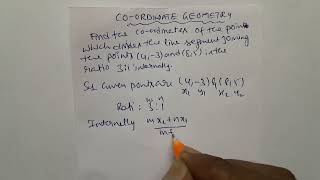 CO-ORDINATE GEOMETRY
Find the co-ordinates of the point
which divides the line segment joining
the points (4,-3) and (8,5) in the
ratio 3:1 internally.
Sol Given points are (4,-3) & (8,5)
x₁ y₁ x₂ y₂
m n
Ratio 3:1
Internally mx₂+nx₁
m+